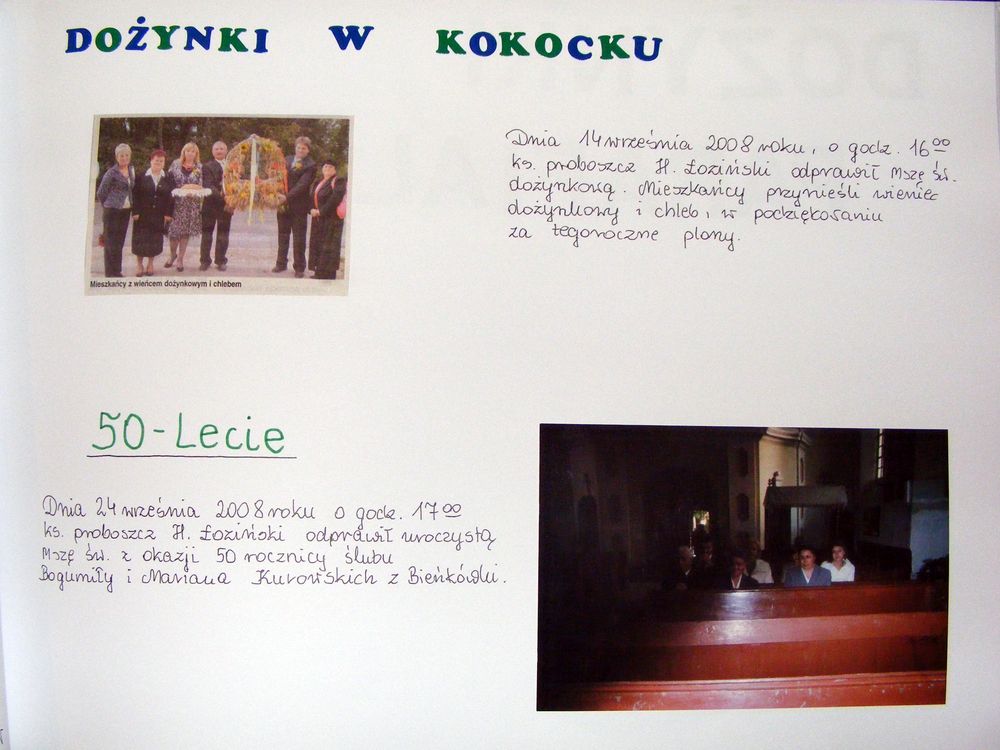 DOŻYNKI W KOKOCKU
Dnia 14 września 2008 roku, o godz. 16⁰⁰
ks. proboszcz H. Łoziński odprawił Mszę św.
dożynkową. Mieszkańcy przynieśli wieniec
dożynkowy i chleb, w podziękowaniu
za tegoroczne plony.
Mieszkańcy z wieńcem dożynkowym i chlebem
50-Lecie
Dnia 24 września 2008 roku o godz. 17⁰⁰
ks. proboszcz H. Łoziński odprawił uroczystą
Mszę św. z okazji 50 rocznicy ślubu
Bogumiły i Mariana Kurowskich z Bieńkówki.